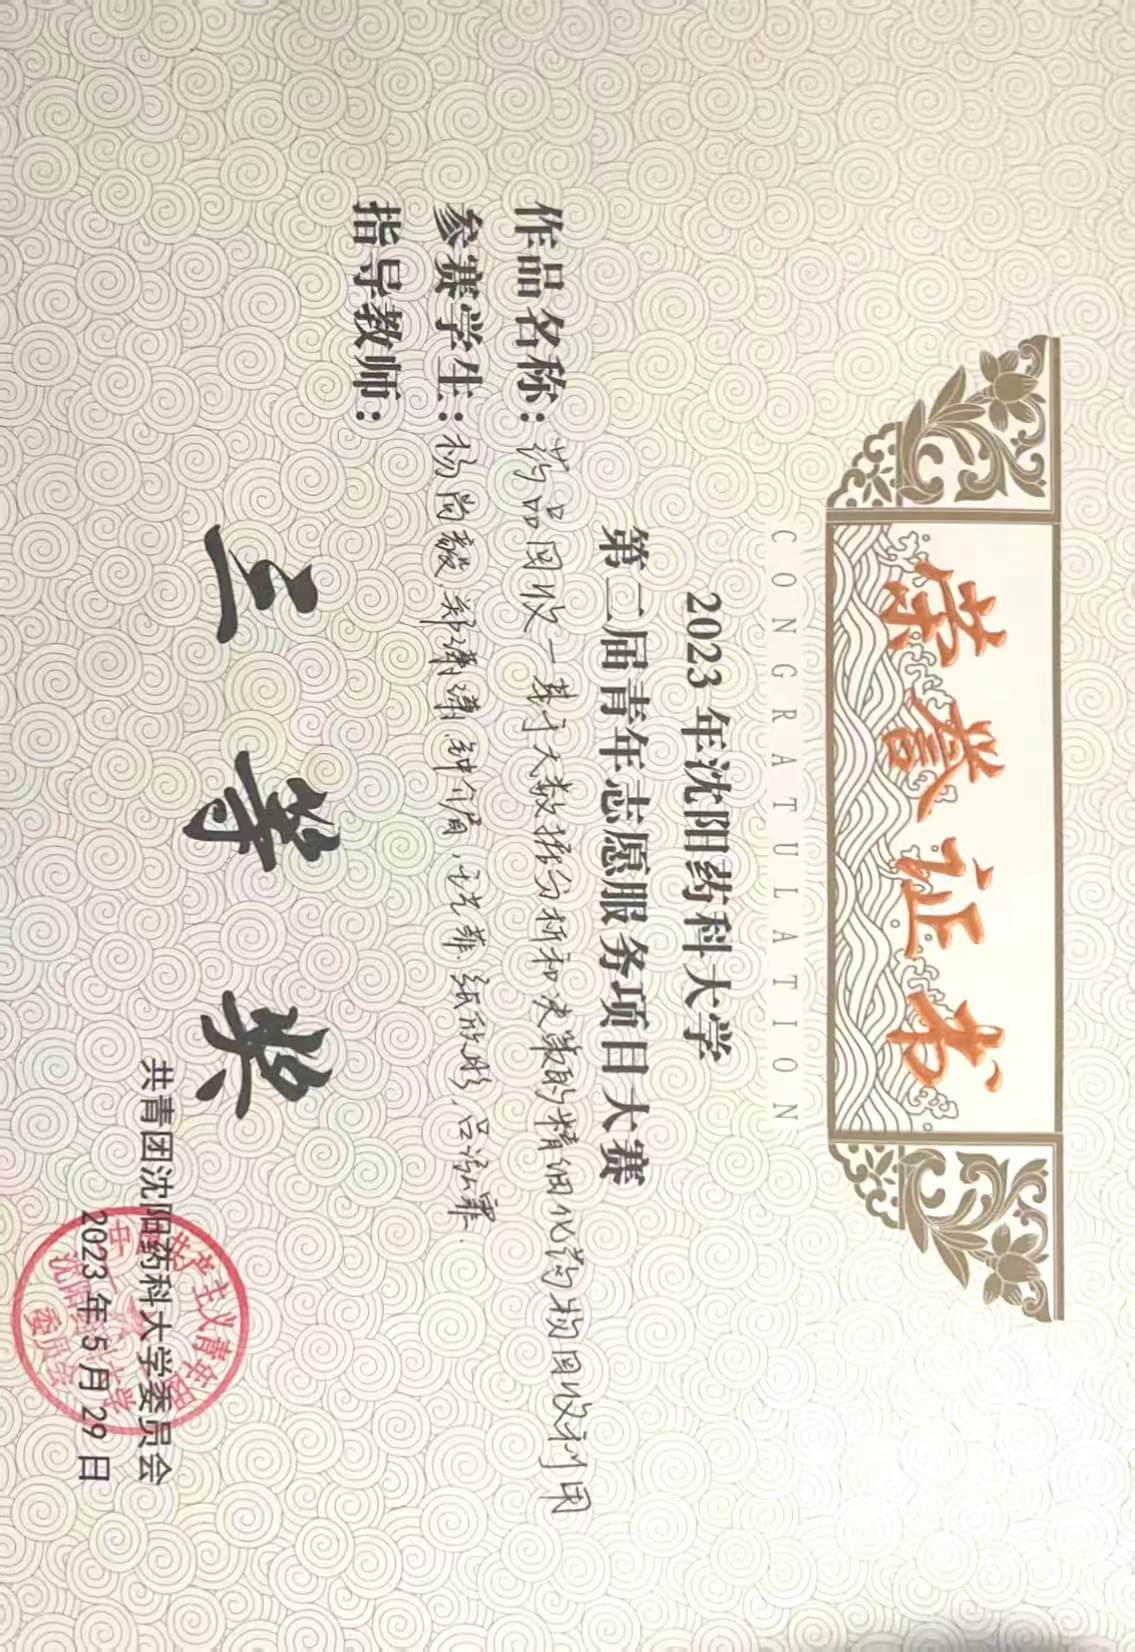 荣誉证书
CONGRATULATION
2023 年沈阳药科大学
第二届青年志愿服务项目大赛
作品名称: 药品回收-基于大数据分析和决策的精细化药物回收利用
参赛学生: 杨尚毅,郑潇潇,钟介眉,王艺菲,张欣彤,吕泓霏.
指导教师:
三等奖
共青团沈阳药科大学委员会
2023 年 5 月 29 日
中国共产主义青年团
沈阳药科大学
委员会